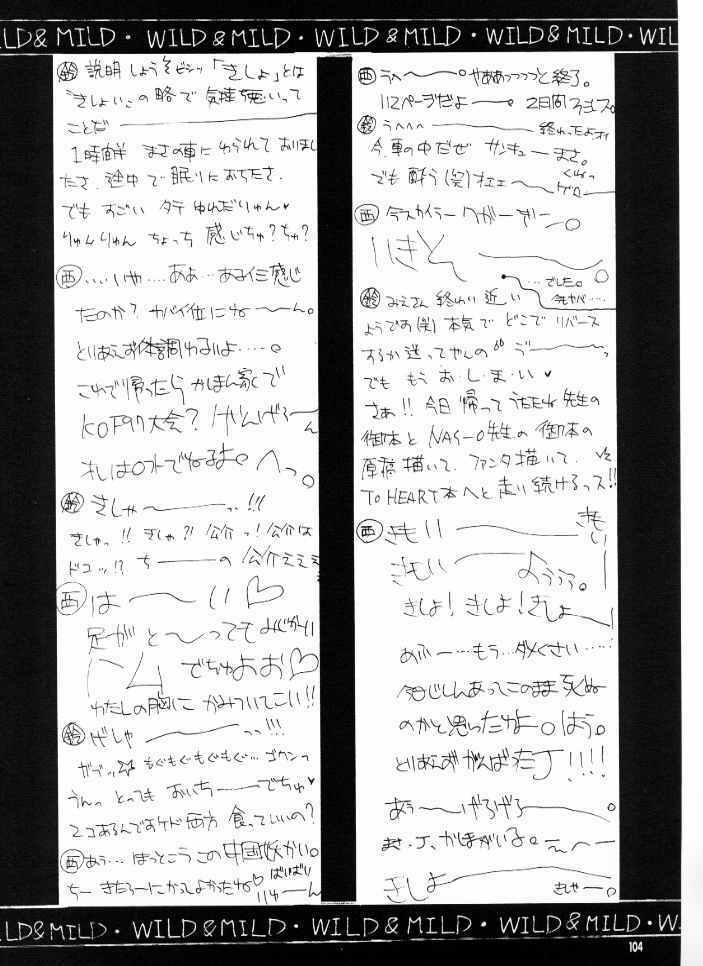 LD & MILD・WILD & MILD・WILD & MILD・WILD & MILD・WIL
鈴 説明しようぞビシッ「きしょ」とは
"きしょい"の略で気持悪いって
ことだ
1時半 まさの車にゆられており
たさ.途中で眠りにおちたさ.
でも すごい タテ ゆれだりゅん♥
りゅんりゅん ちょっち 感じちゅ?ちゅ?
西 ‥‥いや‥‥ああ‥‥ある 感じ
たのか? ヤバイ位にね〜〜ん。
とりあえず体調わるいよ‥‥。
これで帰ったら かほん家で
KOF97大会?
でねるよ。へっ。
鈴 きしゃ〜〜っ!!!
きしゃっ!! きしゃ?! 公介っ!公介は
ドコッ!? ち――の 公介ええ
西 は〜い♡
足が と〜っても みじかい
ハム でちゅよお♡
わたしの胸に かみついてこい!!
鈴 げしゃ――っっ!!!
ガブッ もぐもぐもぐもぐ… ゴクンっ
うんっ とっても おいち――でちゅ♥
2コあるんですケド 両方 食っていいの?
西 あう… ほっとこう この中国妖かい。
ちー きたろーにかってよかったね♡ ばいばい
西 うへ〜〜。やああっっっっと終了。
112ページだよ――。2日間
鈴 うへへへ―― 終わったよオイ
今、車の中だぜ サンキュ―まさ。
でも 酔う(笑)オエェ〜
ゲロ―
西 今スカイラークがーすー
‥でした。
鈴 みえさん 終わり 近い
ようです(笑) 本気で どこで リバース
するか迷ってやんの
でも もう お・し・ま・い♥
さぁ!! 今日 帰って うたたね 先生の
御本と NAS-O先生の 御本の
原稿 描いて、ファンタ描いて、
To HEART本へと 走り続けるっス!!
西 きもい―― きもい
きもい――ようぅぅ。
きしょ!きしょ!きしょ――
あふ―…もう‥ダメくさい‥‥
今日じしんあってこのまま死ぬ
のかと思ったわよ。はう。
とりあえずがんば!!!!
あう〜げろげろ――。
きしょ――
きしゃ―。
LD & MILD・WILD & MILD・WILD & MILD・WILD & MILD・W
104